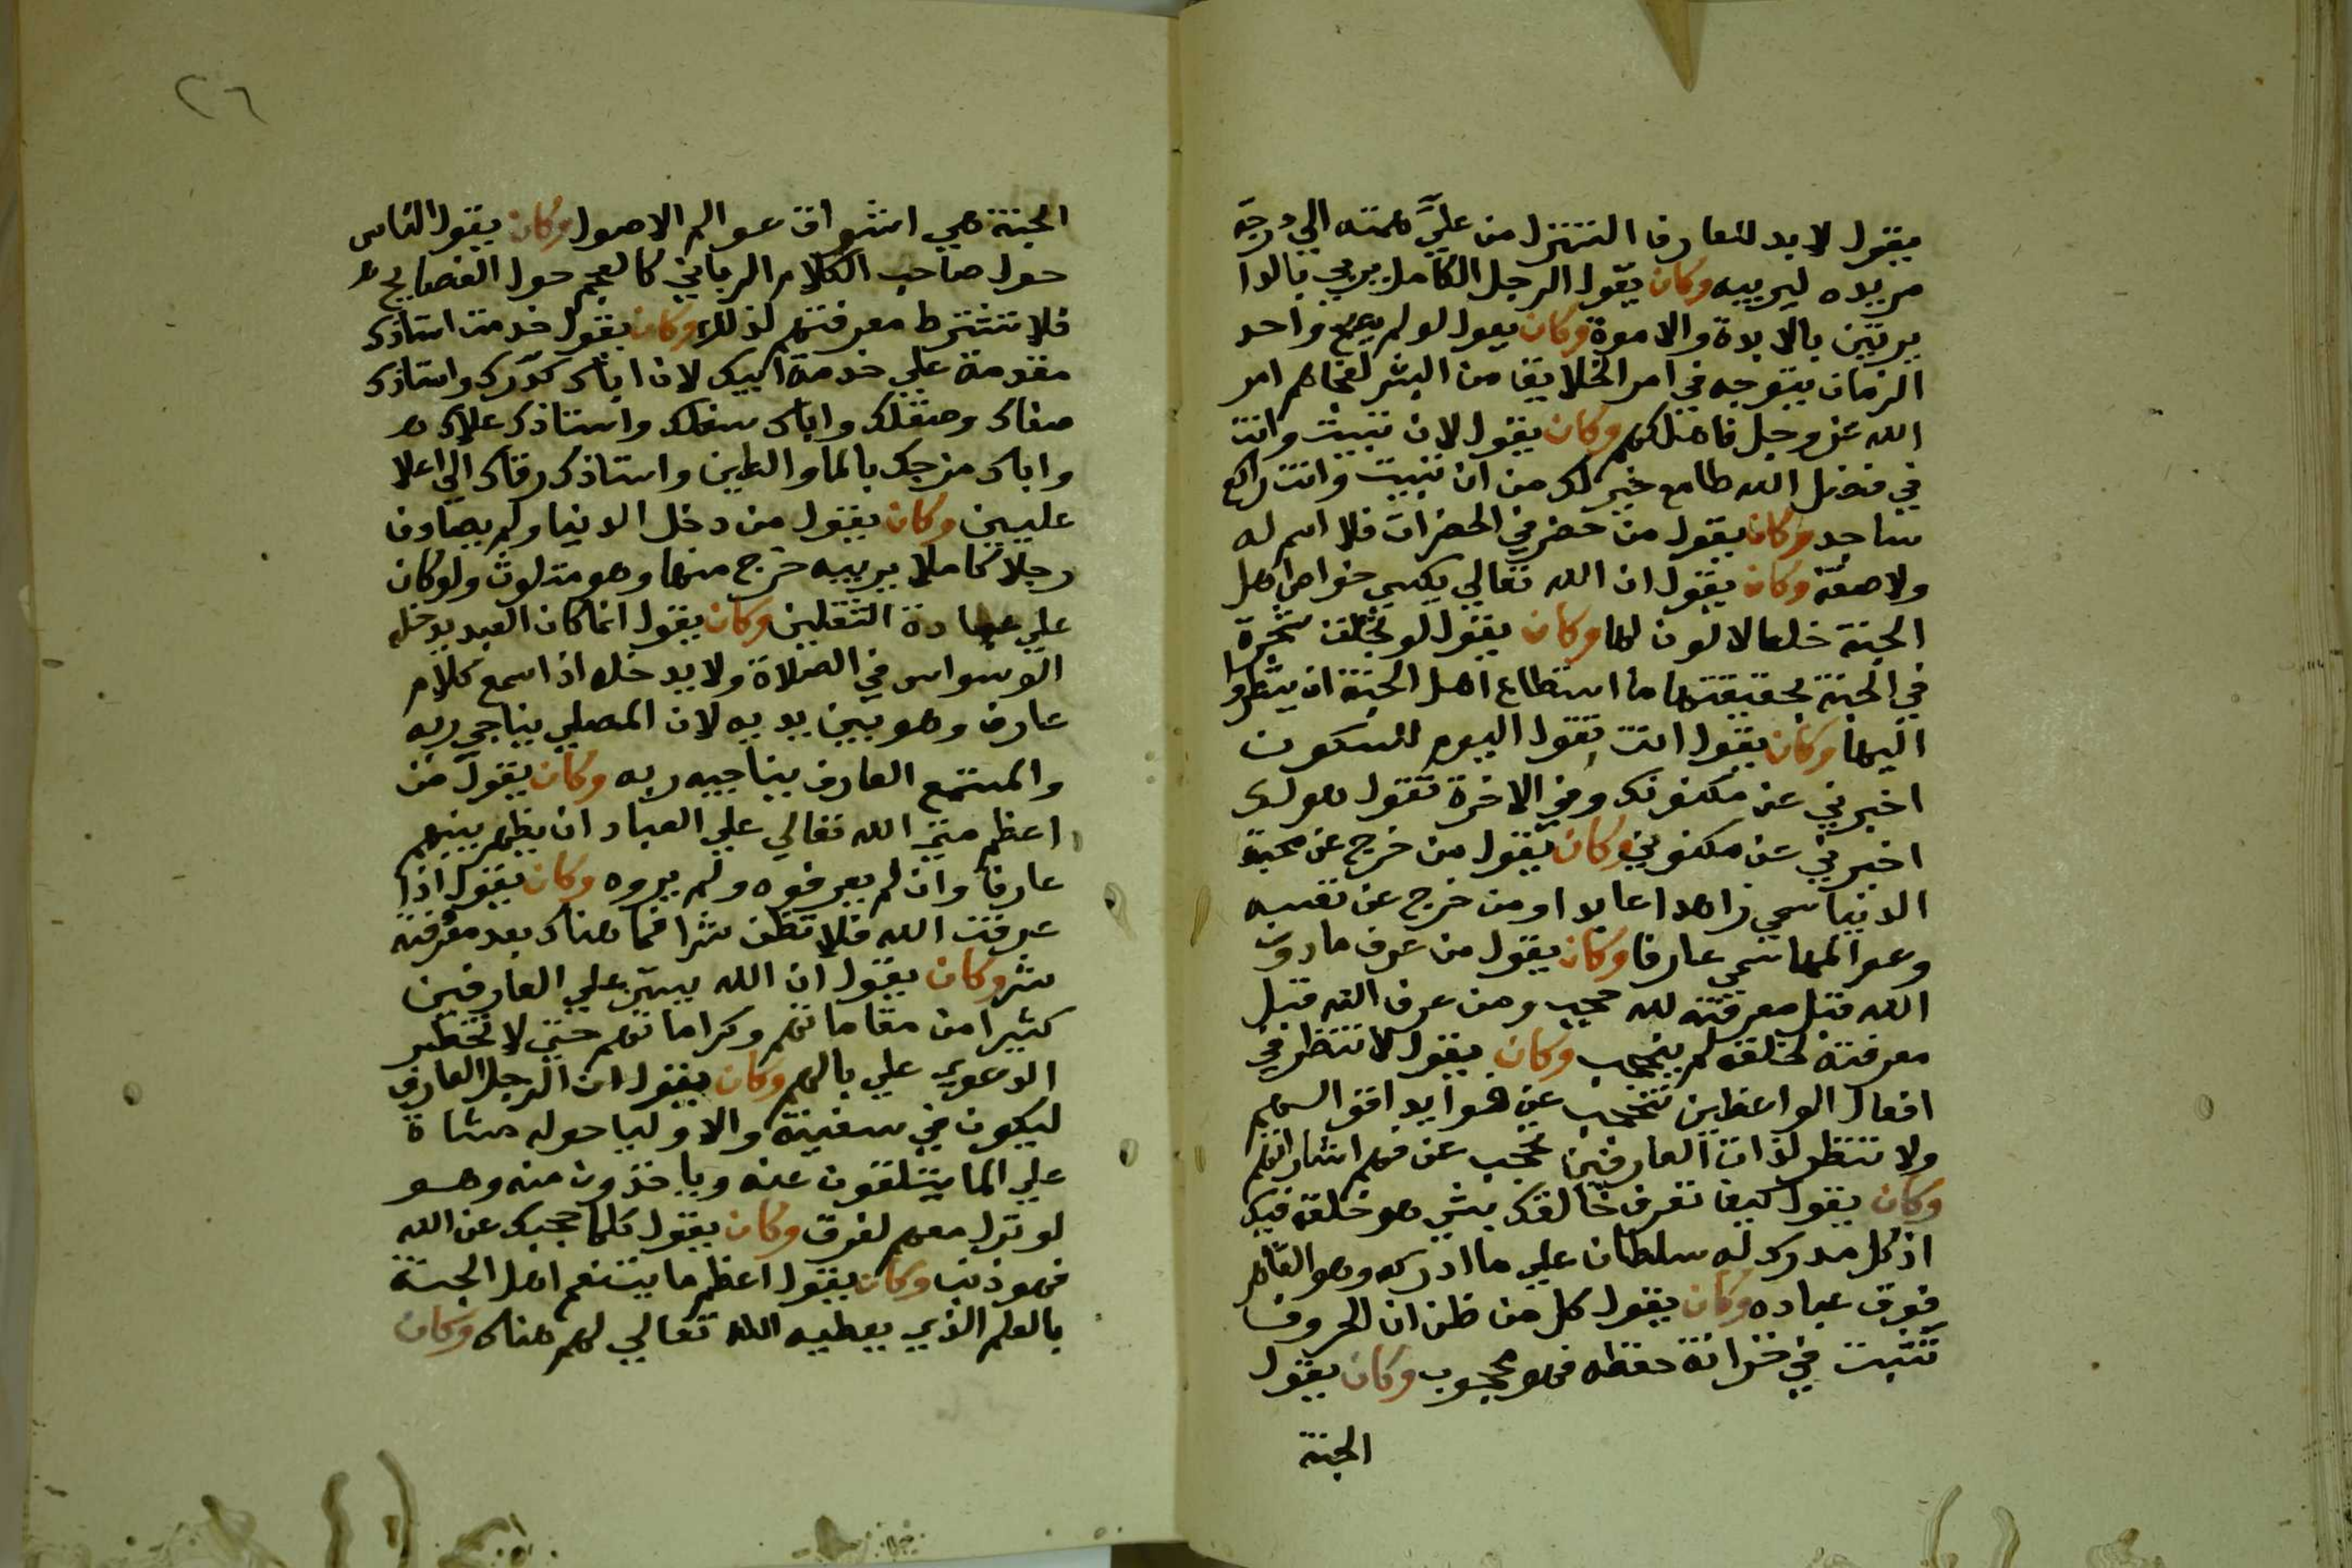 يقول لابد للعارف التنزل من عليّ همته الي درجة
مريده ليربيه وكان يقول الرجل الكامل يربي بالدا
يربين بالابوة والاموة وكان يقول لو لم يصح واحد
الزمان يتوجه في امر الخلايق من البشر لفجاهم امر
الله عز وجل فاهلكهم وكان يقول لان تبيت وانت
في فضل الله طامع خير لك من ان تبيت وانت راكع
ساجد وكان يقول من حضر في الحضرات فلا اسم له
ولا صفة وكان يقول ان الله تعالي يكسي خواص اهل
الجنة خلعا لا لون لها وكان يقول لو تجلت شجرة
في الجنة بحقيقتها ما استطاع اهل الجنة ان ينظروا
اليها وكان يقول انت تقول اليوم للسكون
اخبرني عن مكنونك وفي الاخرة تقول هو لك
اخبرني عن مكنوني وكان يقول من خرج عن محبة
الدنيا سمي زاهدا عابدا ومن خرج عن نفسه
وعوالمها سمي عارفا وكان يقول من عرف ما دون
الله قبل معرفته لله حجب ومن عرف الله قبل
معرفته لخلقه لم ينحجب وكان يقول لا تنظر في
افعال الواعظين تنحجب عن فوايد اقوالهم
ولا تنظر لذات العارفين تحجب عن فهم اشاراتهم
وكان يقول كيف تعرف خالقك بشي هو خلقه فيك
اذ كل مدرك له سلطان علي ما ادركه وهو القاهر
فوق عباده وكان يقول كل من ظن ان الحروف
تثبت في خزانة حفظه فهو محجوب وكان يقول
الجنة
٢٦
الجنة هي اشواق عوالم الاصول وكان يقول الناس
حول صاحب الكلام الرباني كالعجم حول الفصايح
فلا تشترط معرفتهم لذلك وكان يقول خدمت استاذك
مقدمة علي خدمة ابيك لان اباك كدرك واستاذك
صفاك وصقلك واباك سفلك واستاذك علاك
واباك مزجك بالما والطين واستاذك رقاك الي اعلا
عليين وكان يقول من دخل الدنيا ولم يصادف
رجلا كاملا يربيه خرج منها وهو متلوث ولو كان
علي عبادة الثقلين وكان يقول انما كان العبد يدخله
الوسواس في الصلاة ولا يدخله اذا سمع كلام
عارف وهو بين يديه لان المصلي يناجي ربه
والمستمع العارف يناجيه ربه وكان يقول من
اعظم منن الله تعالي علي العباد ان يظهر بينهم
عارفا وان لم يعرفوه ولم يروه وكان يقول اذا
عرفت الله فلا تظن شرا فما هناك بعد معرفته
شر وكان يقول ان الله يستر علي العارفين
كثيرا من مقاماتهم وكراماتهم حتي لا تخطر
الدعوي علي بالهم وكان يقول ان الرجل العارف
ليكون في سفينة والاوليا حوله مشاة
علي الما يتلقون عنه وياخذون منه وهو
لو نزل معهم لغرق وكان يقول كلما حجبك عن الله
فهو ذنب وكان يقول اعظم ما يتنعم اهل الجنة
بالعلم الذي يعطيه الله تعالي لهم هناك وكان